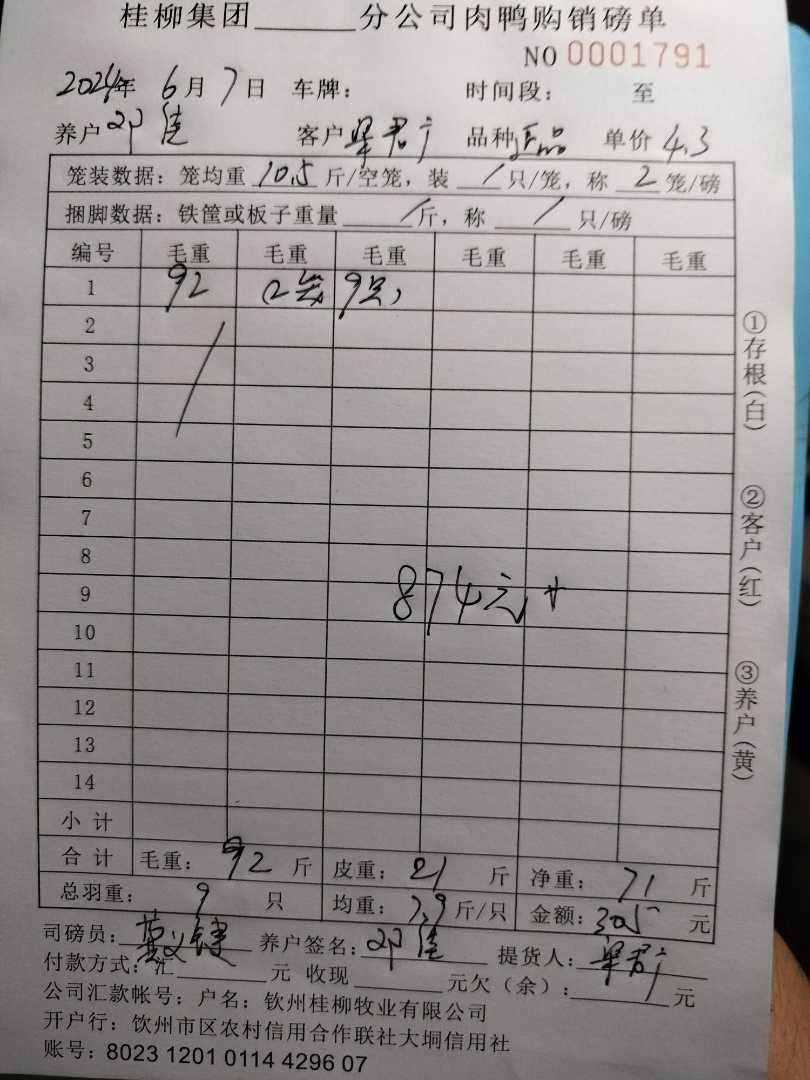 桂柳集团______分公司肉鸭购销磅单
NO 0001791
2024年 6月7日 车牌: 时间段: 至
养户 邓佳 客户 梁君广 品种 正品 单价 4.3
笼装数据: 笼均重 10.5 斤/空笼, 装 / 只/笼, 称 2 笼/磅
捆脚数据: 铁筐或板子重量 / 斤, 称 / 只/磅
编号 毛重 毛重 毛重 毛重 毛重 毛重
1 92 2笼 9只
2
3
4
5
6
7
8
9 874元
10
11
12
13
14
小计
合计 毛重: 92 斤 皮重: 21 斤 净重: 71 斤
总羽重: 9 只 均重: 7.9 斤/只 金额: 305 元
司磅员: 养户签名: 邓佳 提货人: 梁君广
付款方式: 汇______元 收现______元欠(余): / 元
公司汇款帐号: 户名: 钦州桂柳牧业有限公司
开户行: 钦州市区农村信用合作联社大垌信用社
账号: 8023 1201 0114 4296 07
①存根(白)
②客户(红)
③养户(黄)